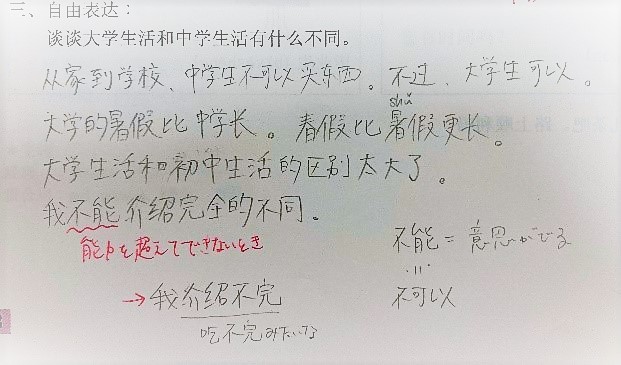 三、自由表达：
谈谈大学生活和中学生活有什么不同。
从家到学校、中学生不可以买东西。不过、大学生可以。
shǔ
大学的暑假比中学长。春假比暑假更长。
大学生活和初中生活的区别太大了。
我不能介绍完全的不同。
能力を超えてできないとき
不能＝意思がでる
不可以
→我介绍不完
吃不完みたいな